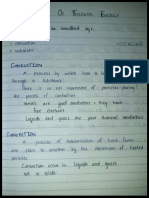 Of Thermal Energy
is transferred by:
- convection
- radiation
CONDUCTION
A process by which heat is
through a substance
There is is no movement of particles during
the process of conduction
Metals are good conductors - they have
free electrons
Liquids and gases are poor thermal conductors
CONVECTION
A process of transmission of heat from
one place to another by the movement of heated
particles.
Convection occur in liquids and gases
not in solids